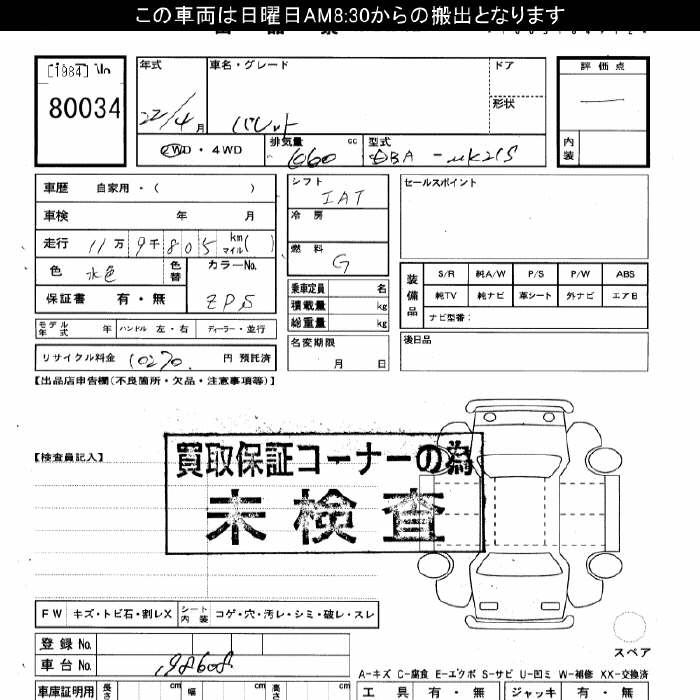 この車両は日曜日AM8:30からの搬出となります
[1984]
80034
年式
22/4月
車名・グレード
パレット
ドア
形状
評価点
内装
2WD・4WD
排気量
660 cc
型式
DBA-MK21S
車歴 自家用・( )
車検 年 月
走行 11万9千805 km マイル( )
色 水色
色替
カラーNo.
ZPS
保証書 有・無
モデル年式 年 ハンドル 左・右 ディーラー・並行
リサイクル料金 10270 円 預託済
シフト
IAT
冷房
燃料
G
乗車定員 名
積載量 kg
総重量 kg
名変期限
月 日
セールスポイント
装備品
S/R 純A/W P/S P/W ABS
純TV 純ナビ 革シート 外ナビ エアB
ナビ型番:
後日品
【出品店申告欄(不良箇所・欠品・注意事項等)】
【検査員記入】
買取保証コーナーの為
未検査
FW キズ・トビ石・割レX シート内装 コゲ・穴・汚レ・シミ・破レ・スレ
スペア
登録No.
車台No. 198608
A-キズ C-腐食 E-エクボ S-サビ U-凹ミ W-補修 XX-交換済
車庫証明用 長さ cm 幅 cm 高さ cm
工具 有・無 ジャッキ 有・無